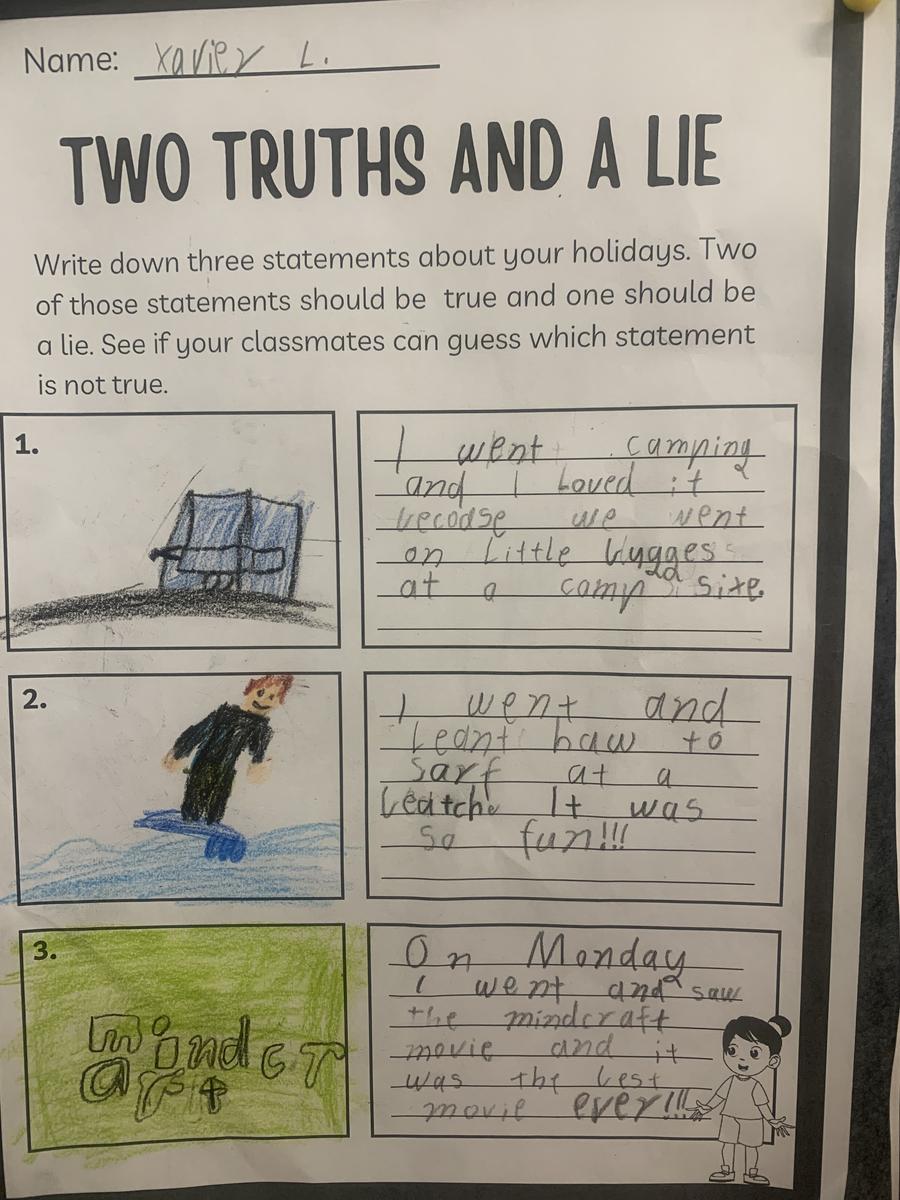 Name: Xavier L.
TWO TRUTHS AND A LIE
Write down three statements about your holidays. Two
of those statements should be true and one should be
a lie. See if your classmates can guess which statement
is not true.
1.
I went camping
and I Loved it
becodse we went
on Little bugges
at a camp site.
2.
I went and
Leant haw to
sarf at a
beatche It was
so fun!!!
3.
mindcr
art
On Monday
I went and saw
the mindcraft
movie and it
was the best
movie ever!!!